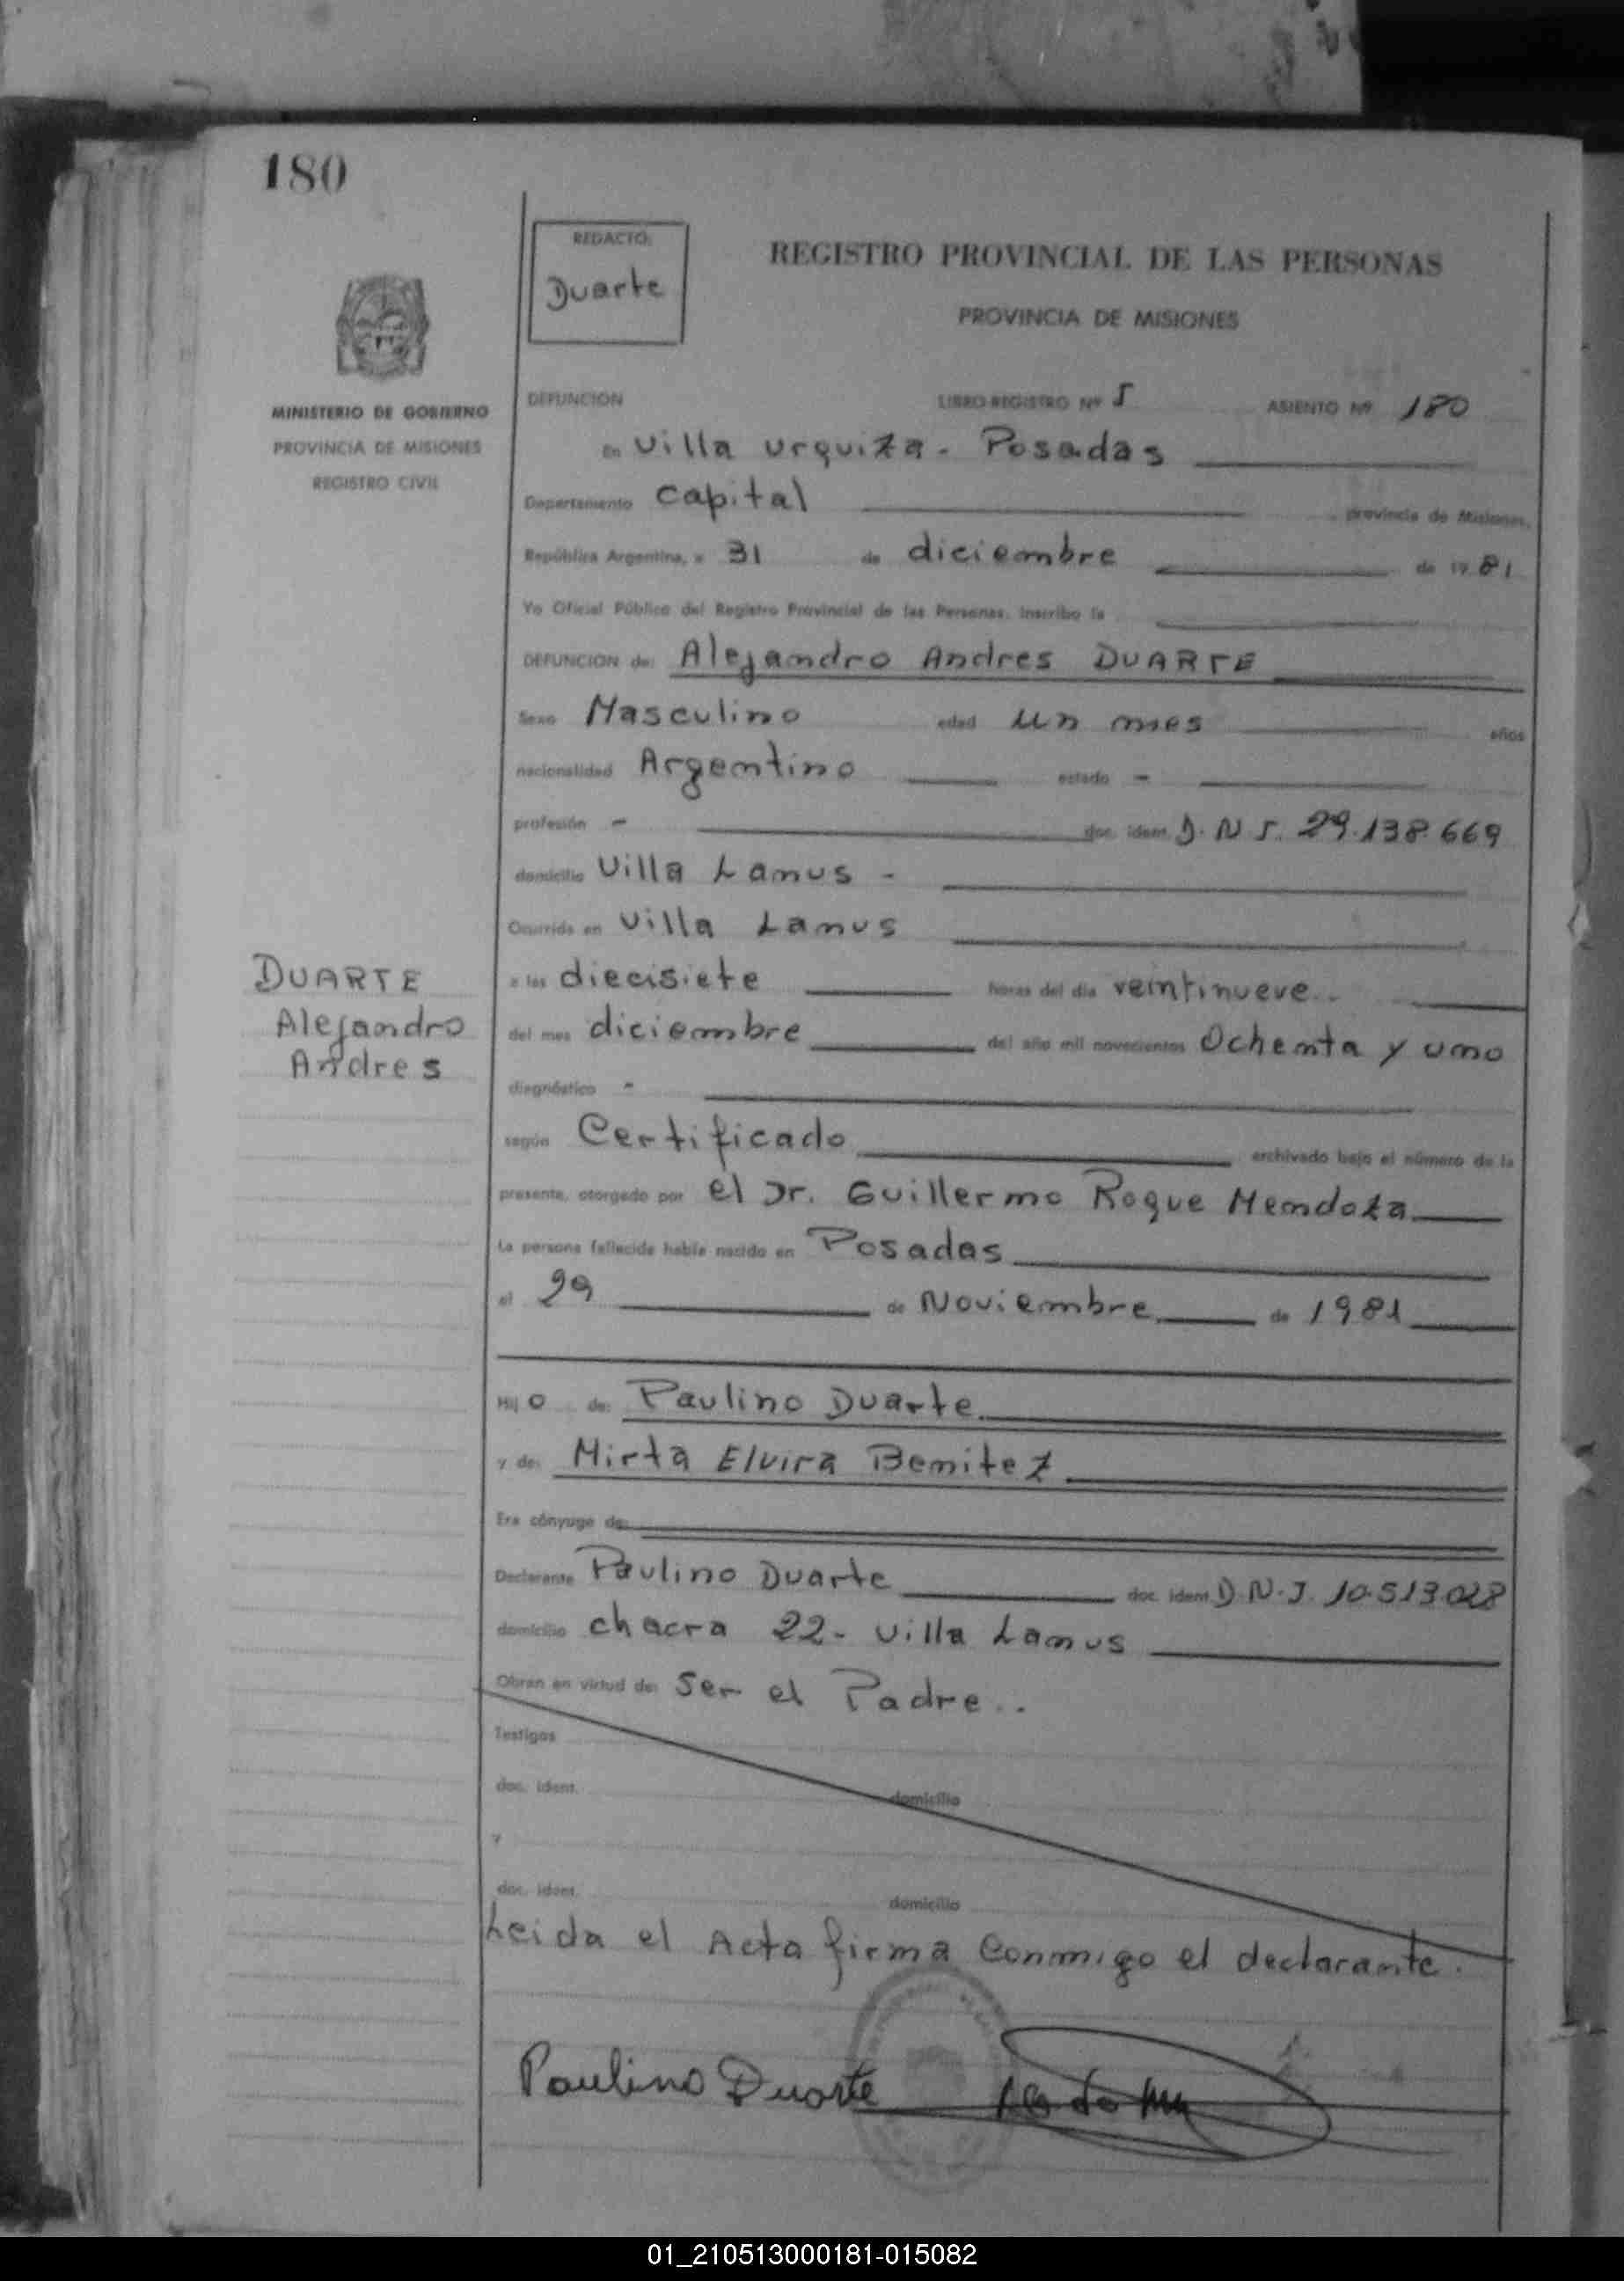 180
REDACTO:
Duarte
REGISTRO PROVINCIAL DE LAS PERSONAS
PROVINCIA DE MISIONES
MINISTERIO DE GOBIERNO
PROVINCIA DE MISIONES
REGISTRO CIVIL
DEFUNCION LIBRO-REGISTRO Nº 5 ASIENTO Nº 180
En Villa Urquiza - Posadas
Departamento Capital provincia de Misiones,
República Argentina, a 31 de diciembre de 19 81
Yo Oficial Público del Registro Provincial de las Personas, inscribo la
DEFUNCION de: Alejandro Andres DUARTE
Sexo Masculino edad un mes años
nacionalidad Argentino estado -
profesión - doc. ident. D.N.I. 29.138.669
domicilio Villa Lanus -
Ocurrida en Villa Lanus
a las diecisiete horas del día veintinueve..
del mes diciembre del año mil novecientos Ochenta y uno
diagnóstico -
según Certificado archivado bajo el número de la
presente, otorgado por el Dr. Guillermo Roque Mendoza
La persona fallecida había nacido en Posadas
el 29 de Noviembre de 1981
Hij o de: Paulino Duarte
y de: Mirta Elvira Benitez
Era cónyuge de:
Declarante Paulino Duarte doc. ident. D.N.I. 10.513.028
domicilio chacra 22 - Villa Lanus
Obran en virtud de: Ser el Padre..
Testigos
doc. ident. domicilio
y
doc. ident. domicilio
Leida el Acta firma Conmigo el declarante.
Paulino Duarte
DUARTE
Alejandro
Andres
01_210513000181-015082